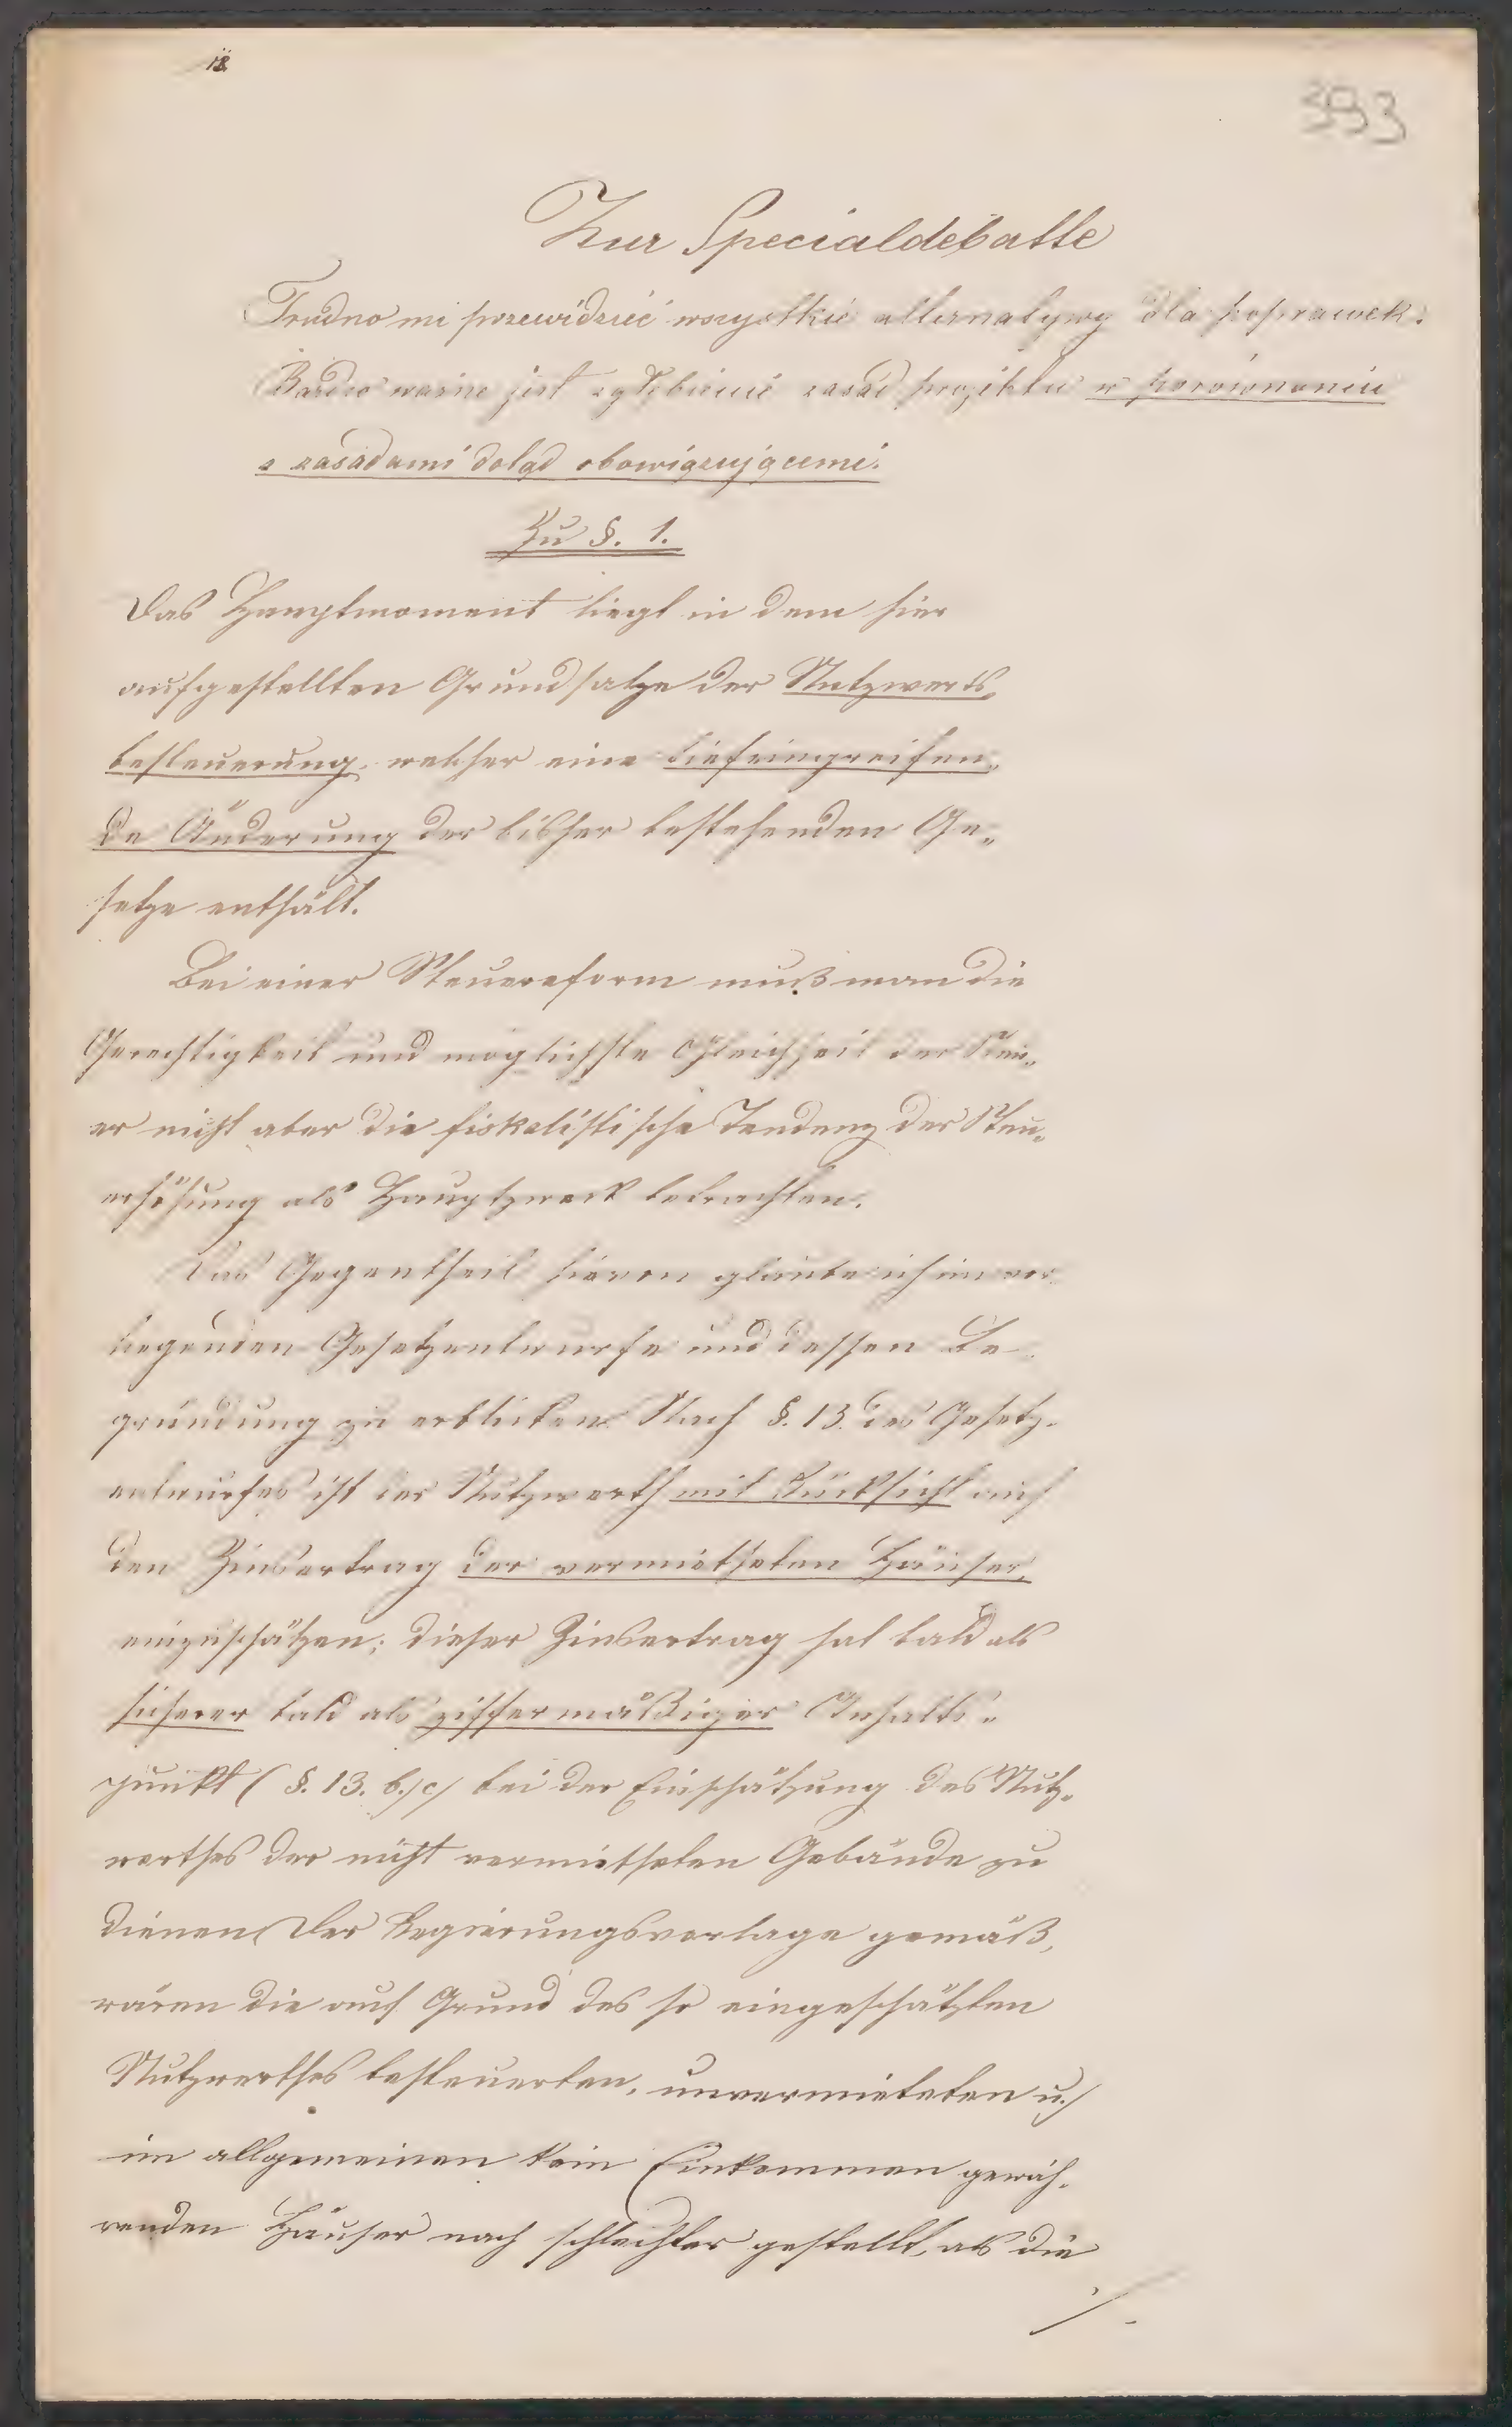 18
393
Zur Specialdebatte
Trudno mi przewidzieć wszystkie alternatywy dla poprawek.
Bardzo ważne jest zgłębienie zasad projektu w porównaniu
z zasadami dotąd obowiązującemi.
Zu §. 1.
Das Hauptmoment liegt in dem hier
aufgestellten Grundsatze der Nutzwerts-
besteuerung, welcher eine tiefeingreifen-
de Änderung der bisher bestehenden Ge-
setze enthält.
Bei einer Steuerreform muß man die
Gerechtigkeit und möglichste Gleichheit der Steu-
er nicht aber die fiskalistische Tendenz der Steu-
erhöhung als Hauptzweck betrachten.
Das Gegentheil hievon glaube ich im vor-
liegenden Gesetzentwurfe und dessen Be-
gründung zu erblicken. Nach §. 13. des Gesetz-
entwurfes ist der Nutzwerth mit Rücksicht auf
den Zinsertrag der vermietheten Häuser,
einzuschätzen; dieser Zinsertrag hat bald als
sicherer bald als ziffermäßiger Anhalts-
punkt (§. 13. b./c/ bei der Einschätzung des Nutz-
werthes der nicht vermietheten Gebäude zu
dienen. Der Regierungsvorlage gemäß,
wären die auf Grund des so eingeschätzten
Nutzwerthes besteuerten, unvermieteten u./
im allgemeinen kein Einkommen gewäh-
renden Häuser noch schlechter gestellt, als die
./.